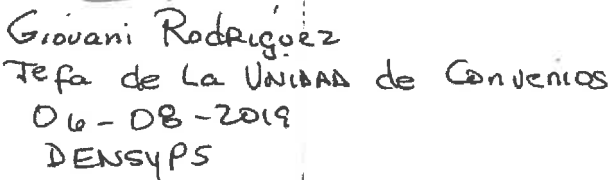 Giovani Rodriguez
Jefa de La UNIDAD de Convenios
06-08-2019
DENSYPS